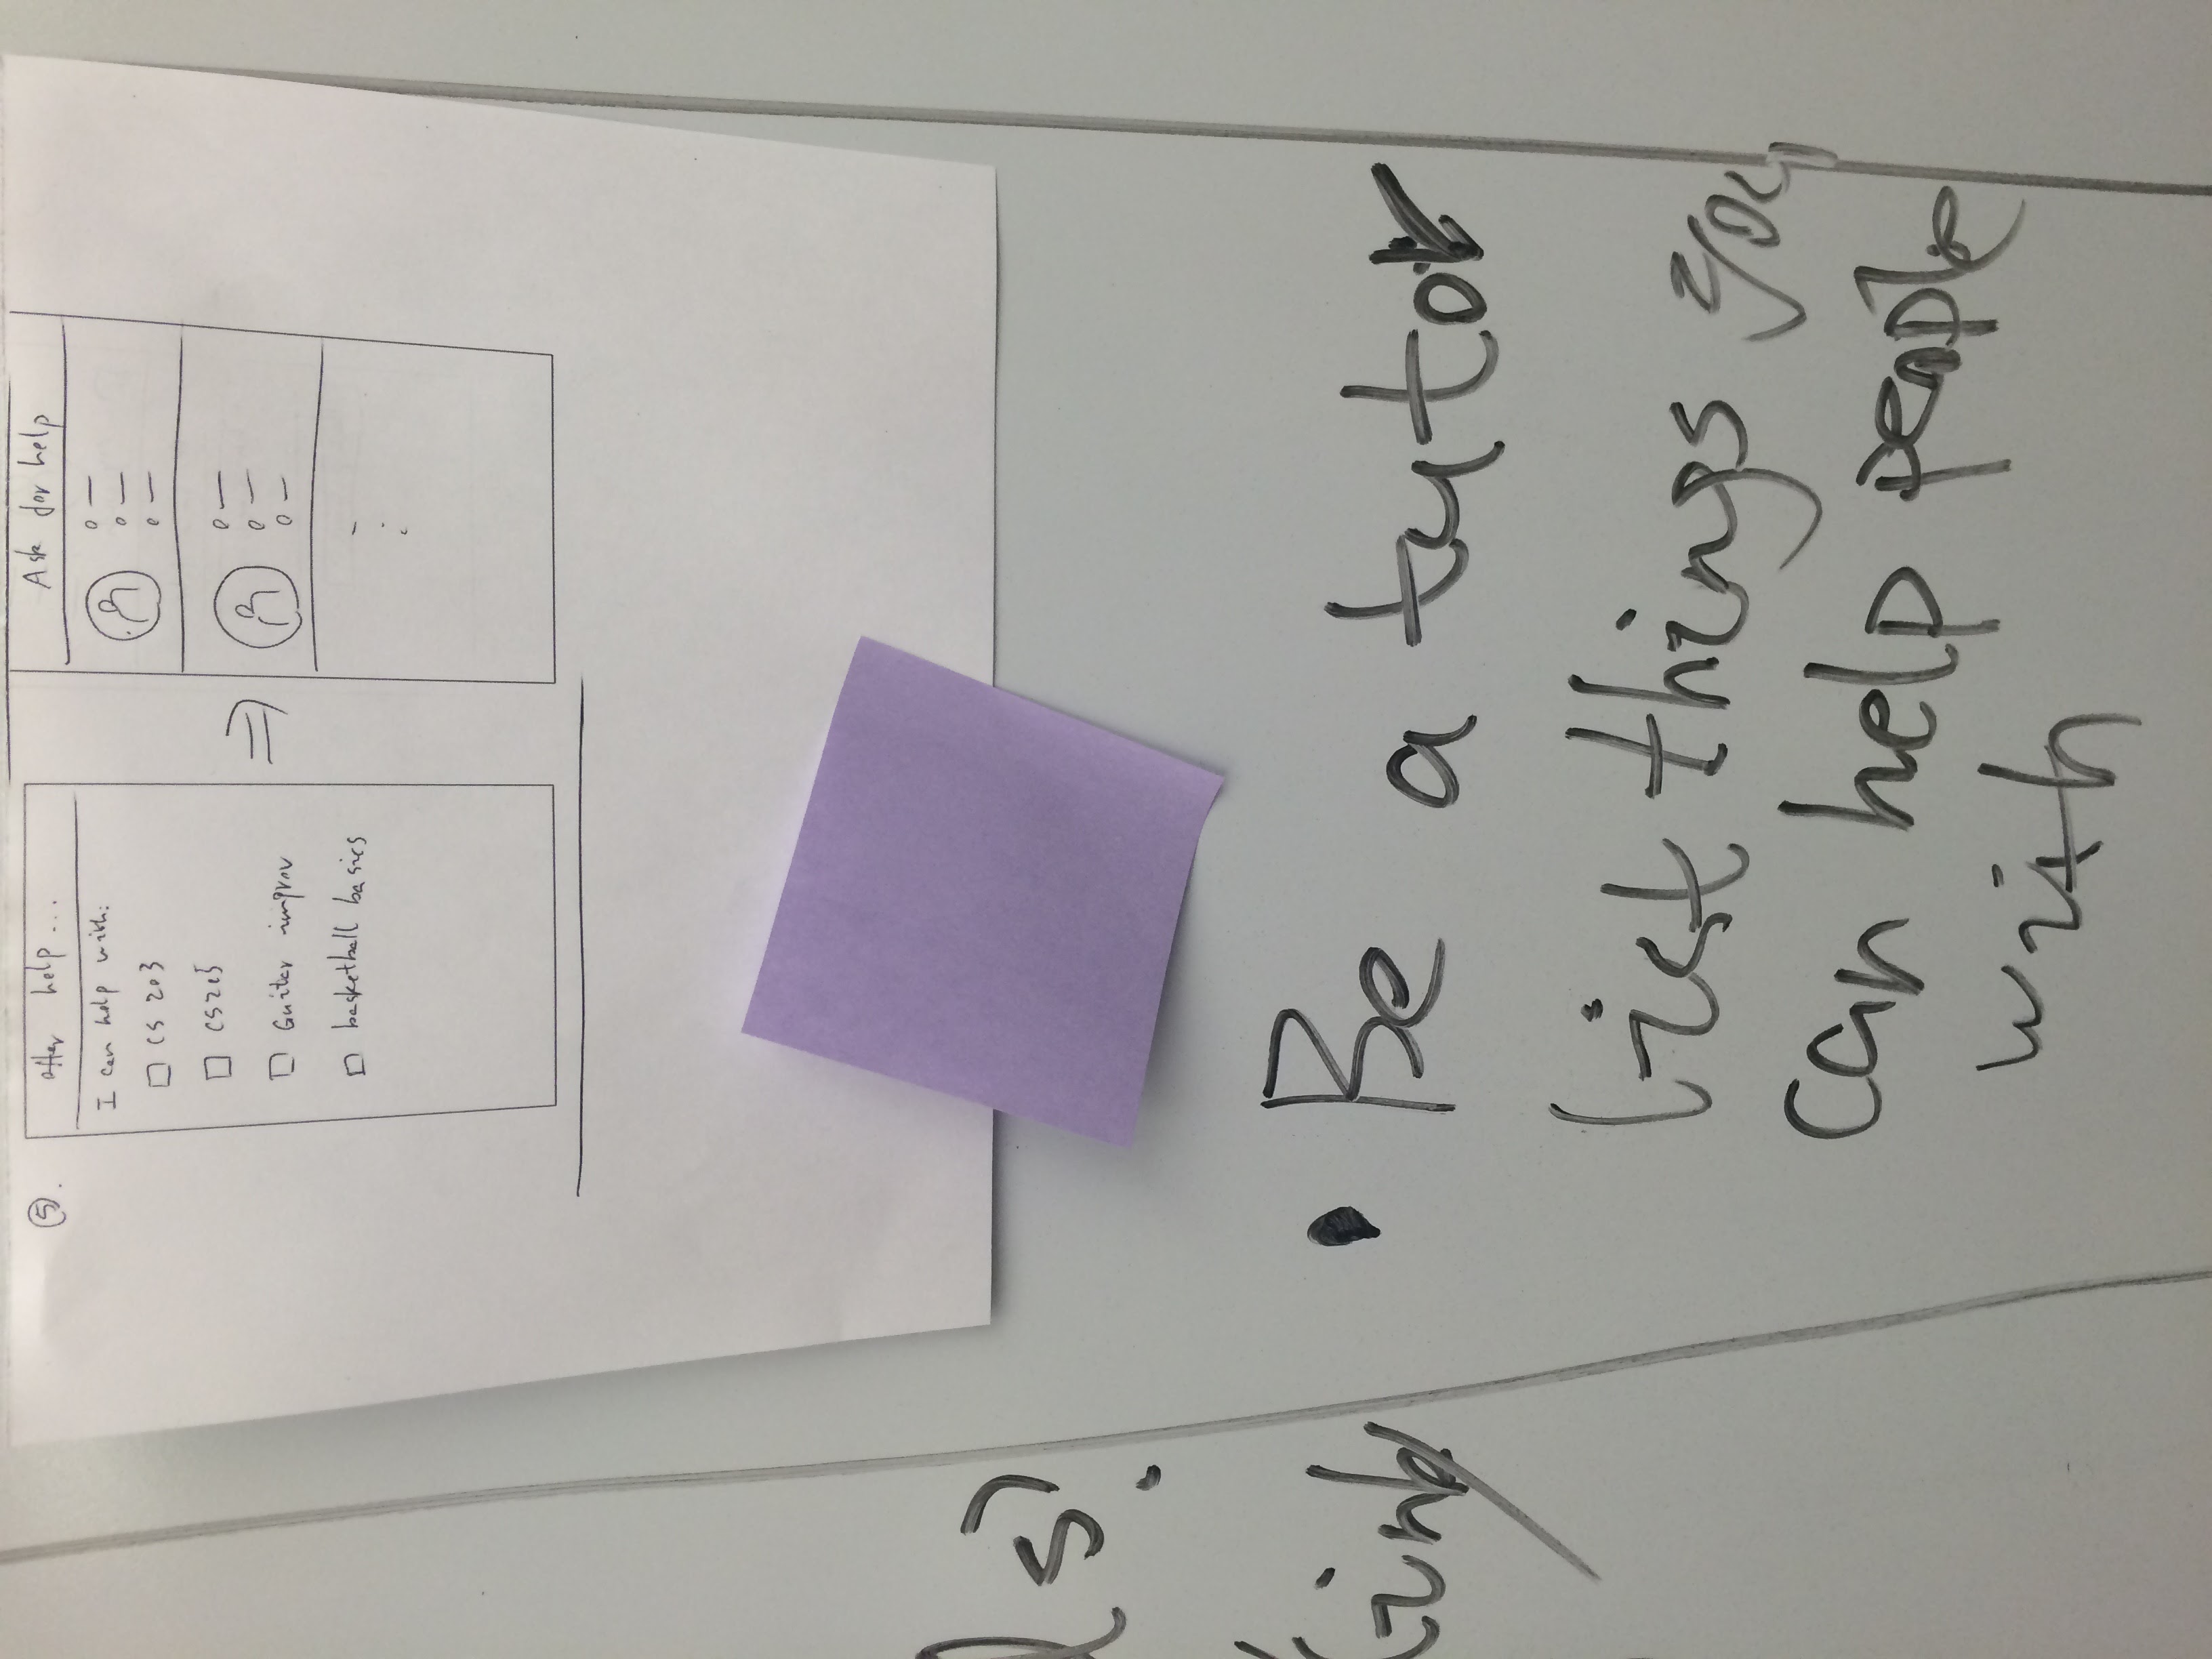 5.
offer help...
I can help with:
CS 203
CS205
Guitar improv
basketball basics
Ask for help
• Be a tutor
list things you
can help people
with